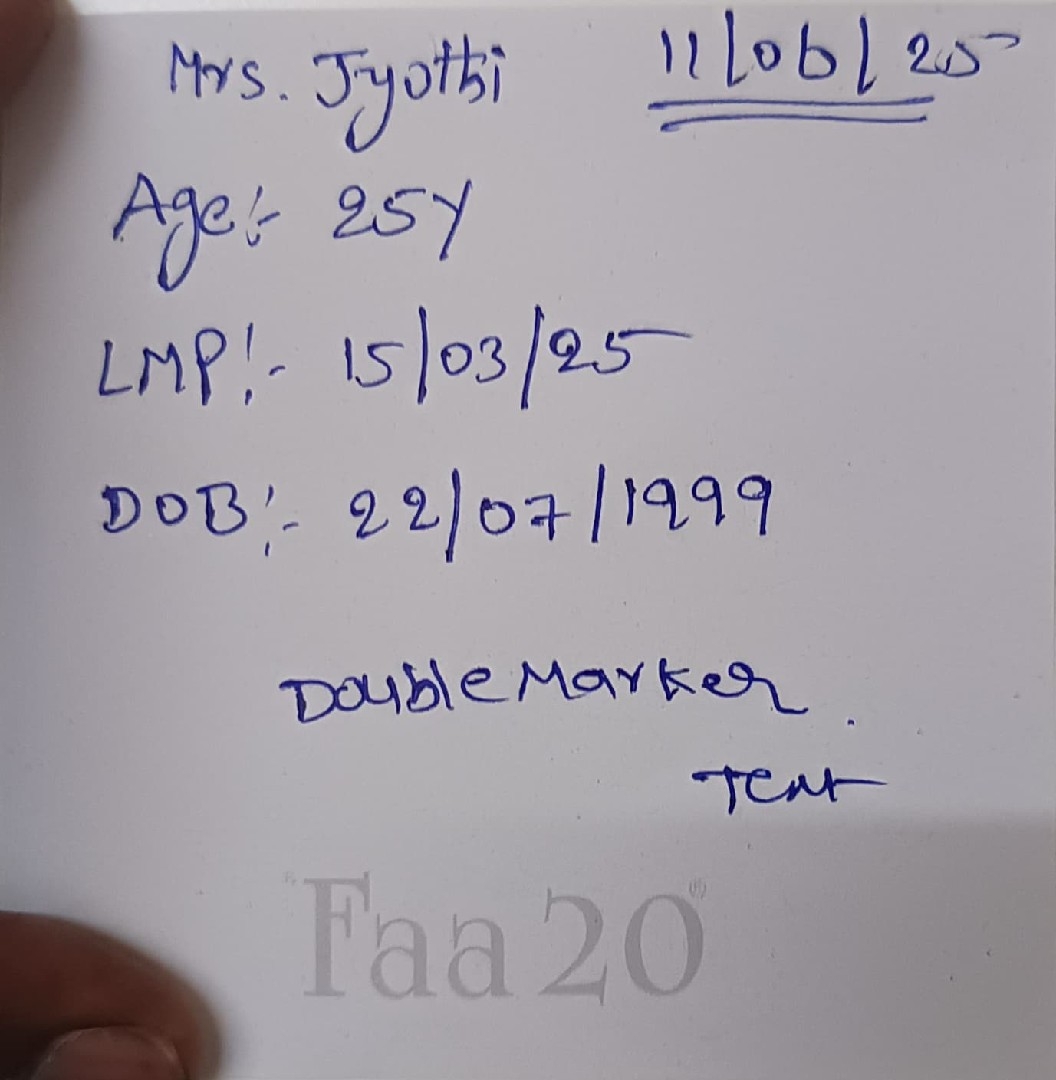 Mrs. Jyothi 11/06/25
Age:- 25Y
LMP:- 15/03/25
DOB:- 22/07/1999
Double Marker.
Test
Faa 20®